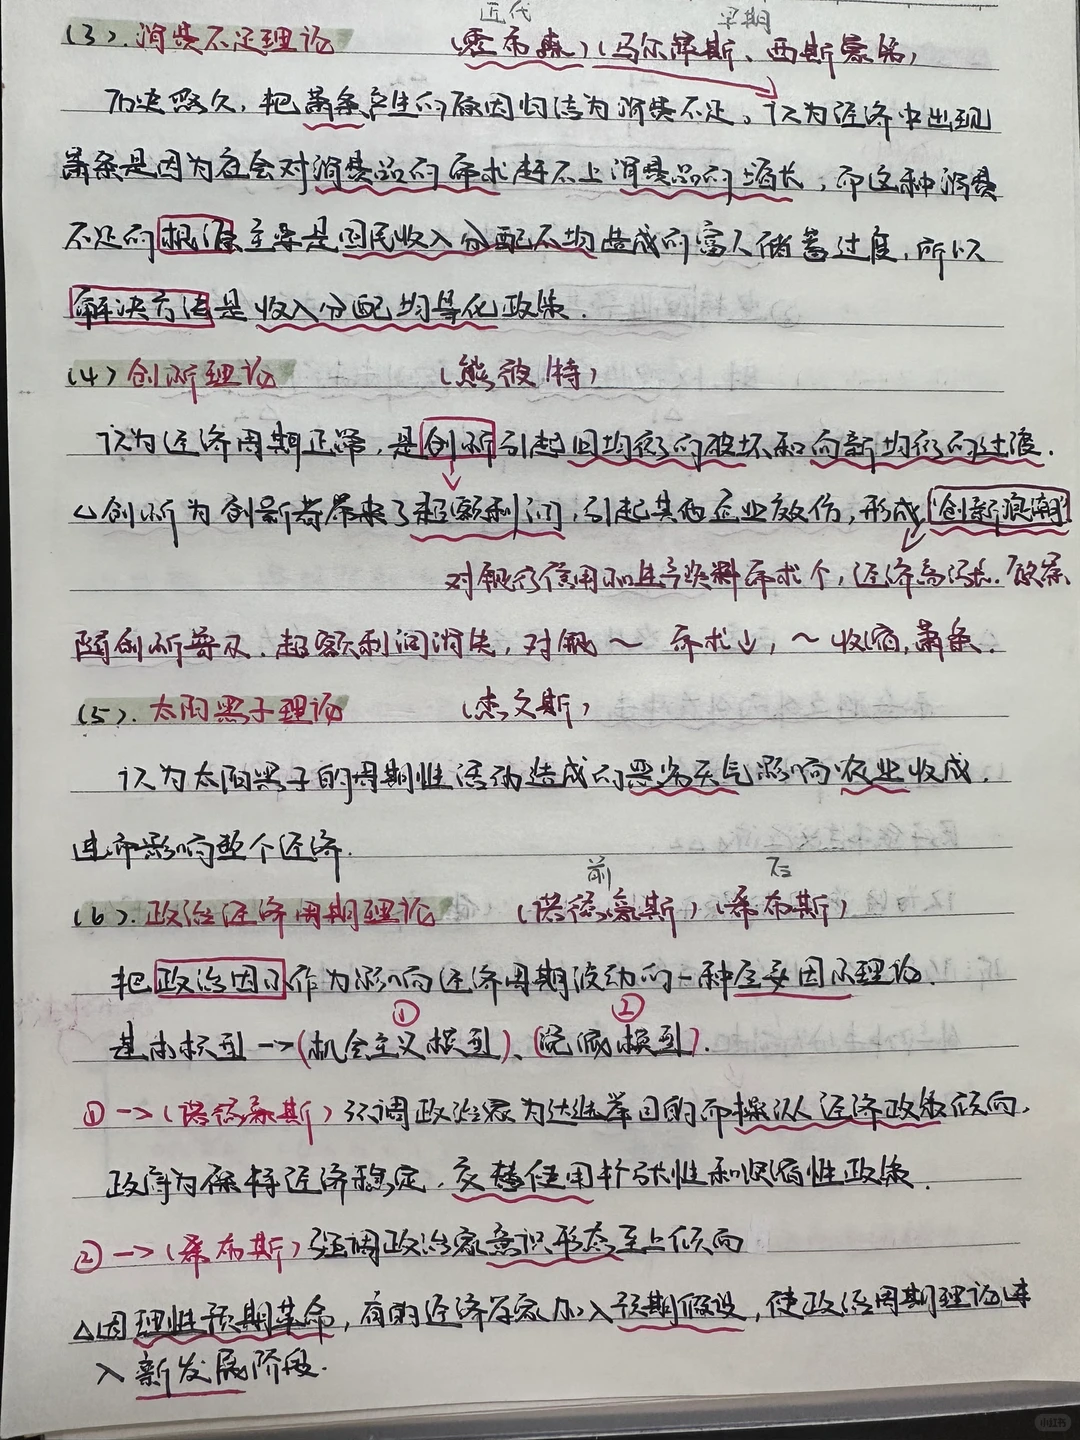 近代 早期
(3). 消费不足理论 (霍布森)(马尔萨斯、西斯蒙第)
历史悠久, 把萧条产生的原因归结为消费不足。认为经济中出现
萧条是因为社会对消费品的需求赶不上消费品的增长, 而这种消费
不足的根源主要是国民收入分配不均造成的富人储蓄过度, 所以
解决方法是收入分配均等化政策.
(4) 创新理论 (熊彼特)
认为经济周期正常, 是创新引起旧均衡的破坏和向新均衡的过渡.
△创新为创新者带来了超额利润, 引起其他企业效仿, 形成"创新浪潮"
对银行信用和生产资料需求个, 经济高涨.
随创新普及, 超额利润消失, 对银~需求↓, ~收缩, 萧条.
(5). 太阳黑子理论 (杰文斯)
认为太阳黑子的周期性活动造成的恶劣天气影响农业收成,
进而影响整个经济.
前 后
(6). 政治经济周期理论 (诺德豪斯)(希布斯)
把政治因素作为影响经济周期波动的一种主要因素理论.
① ②
基本模型→(机会主义模型)、(党派模型).
①→(诺德豪斯)强调政治家为达选举目的而操纵经济政策倾向,
政府为保持经济稳定, 交替使用扩张性和收缩性政策.
②→(希布斯)强调政治家意识形态至上倾向
△因理性预期革命, 有的经济学家加入预期假设, 使政治周期理论进
入新发展阶段.
小红书